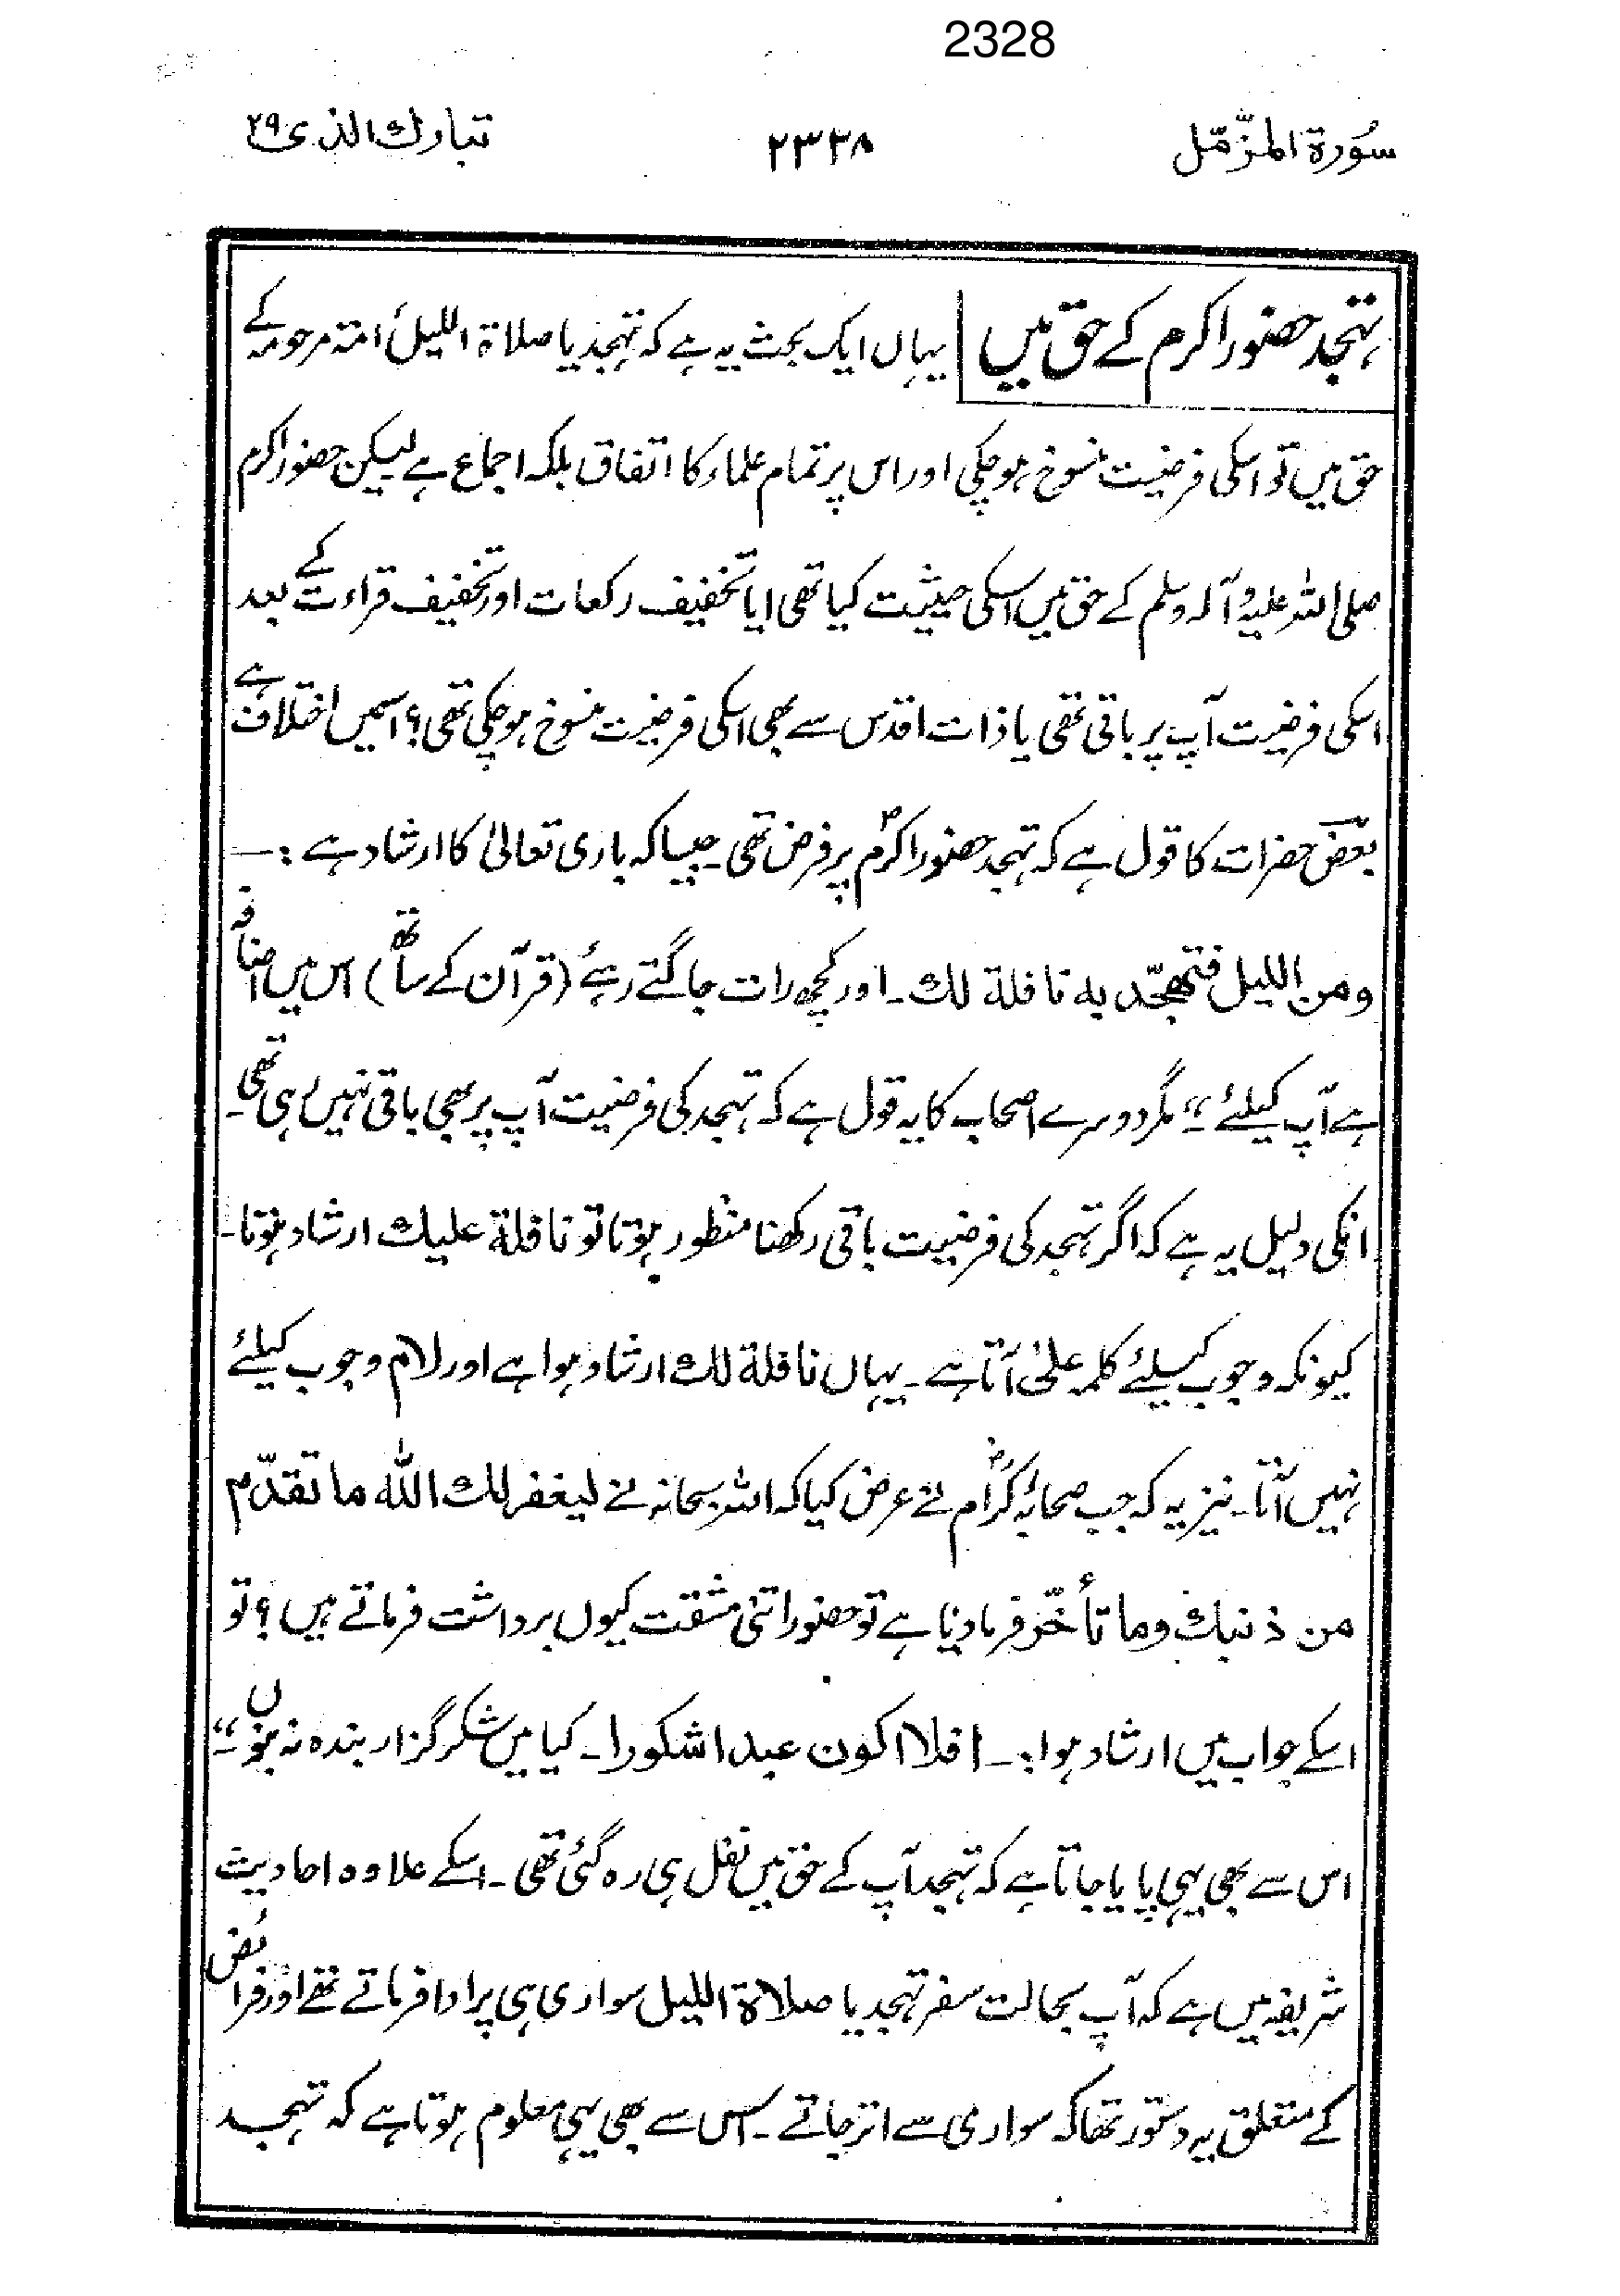 2328
سُورة المزّمّل ۲۳۲۸ تبارك الذی ۲۹
تہجد حضور اکرم کے حق میں یہاں ایک بحث یہ ہے کہ تہجد یا صلاة اللیل امۃ مرحومہ کے
حق میں تو اسکی فرضیت منسوخ ہوچکی اور اس پر تمام علماء کا اتفاق بلکہ اجماع ہے لیکن حضور اکرم
صلی اللہ علیہ وآلہ وسلم کے حق میں اسکی حیثیت کیا تھی ایا تخفیف رکعات اور تخفیف قراءت کے بعد
اسکی فرضیت آپ پر باقی تھی یا ذات اقدس سے بھی اسکی فرضیت منسوخ ہوچکی تھی؟ اسمیں اختلاف ہے
بعض حضرات کا قول ہے کہ تہجد حضور اکرمؐ پر فرض تھی۔ جیسا کہ باری تعالیٰ کا ارشاد ہے :—
ومن اللیل فتھجّد به نافلة لك۔ اور کچھ رات جاگتے رہئے (قرآن کے ساتھ) اس میں اضافہ
ہے آپ کیلئے ۔“ مگر دوسرے اصحاب کا یہ قول ہے کہ تہجد کی فرضیت آپ پر بھی باقی نہیں رہی تھی۔
انکی دلیل یہ ہے کہ اگر تہجد کی فرضیت باقی رکھنا منظور ہوتا تو نافلة علیك ارشاد ہوتا۔
کیونکہ وجوب کیلئے کلمہ علیٰ آتا ہے۔ یہاں نافلة لك ارشاد ہوا ہے اور لام وجوب کیلئے
نہیں آتا۔ نیز یہ کہ جب صحابۂ کرامؓ نے عرض کیا کہ اللہ سبحانہ نے لیغفر لك الله ما تقدّم
من ذنبك وما تأخّر فرما دیا ہے تو حضور اتنی مشقت کیوں برداشت فرماتے ہیں؟ تو
اسکے جواب میں ارشاد ہوا :۔ افلا اکون عبدا شکورا۔ کیا میں شکر گزار بندہ نہ ہوں ۔“
اس سے بھی یہی پایا جاتا ہے کہ تہجد آپ کے حق میں نفل ہی رہ گئی تھی۔ اسکے علاوہ احادیث
شریفہ میں ہے کہ آپ بحالت سفر تہجد یا صلاة اللیل سواری ہی پر ادا فرماتے تھے اور فرائض
کے متعلق یہ دستور تھا کہ سواری سے اتر جاتے۔ اس سے بھی یہی معلوم ہوتا ہے کہ تہجد